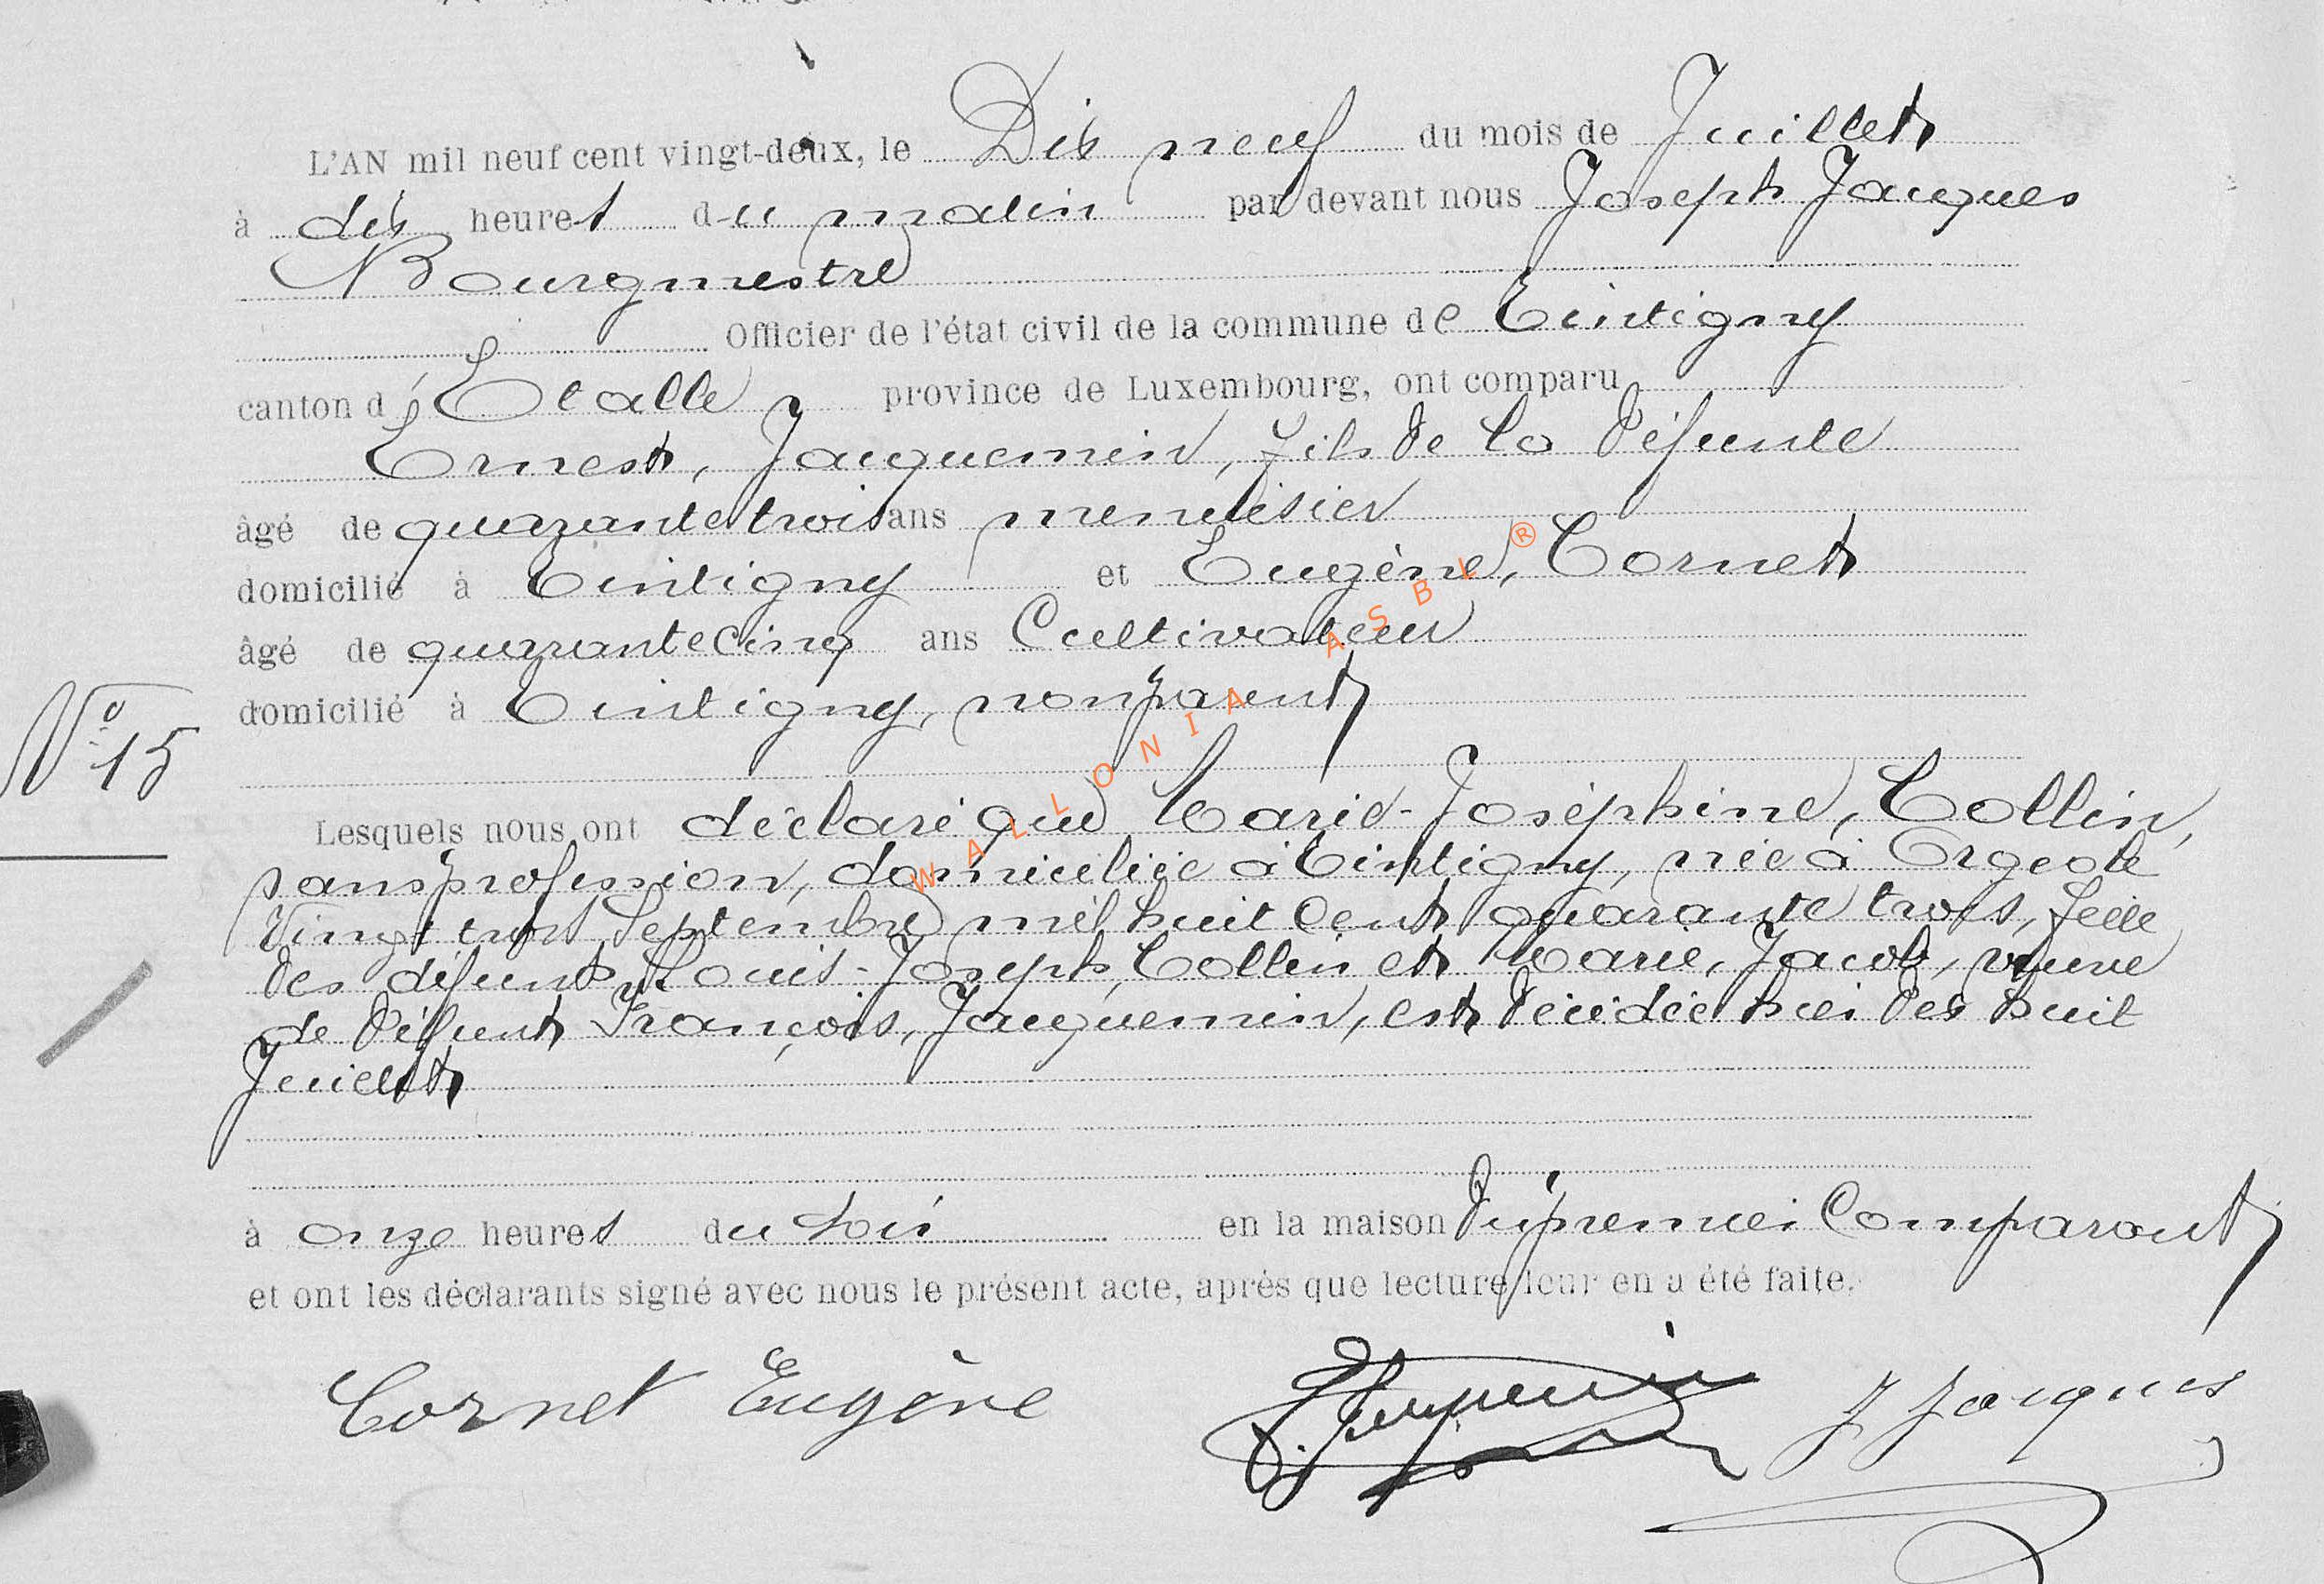 L'AN mil neuf cent vingt-deux, le Dix neuf du mois de Juillet
à dix heures du matin par devant nous Joseph Jacques
Bourgmestre
Officier de l'état civil de la commune de Tintigny
canton d'Etalle province de Luxembourg, ont comparu
Ernest, Jacquemin, fils de la défunte
âgé de quarante trois ans menuisier
domicilié à Tintigny et Eugène, Cornet
âgé de quarante cinq ans Cultivateur
domicilié à Tintigny, non parent
N° 15
Lesquels nous ont déclaré que Marie-Joséphine, Collin,
sans profession, domiciliée à Tintigny, née à Orgeo le
Vingt trois Septembre mil huit cent quarante trois, fille
des défunts Louis-Joseph, Collin et Marie, Jacob, veuve
de défunt François, Jacquemin, est décédée hier dix huit
Juillet
à onze heures du soir en la maison du premier Comparant
et ont les déclarants signé avec nous le présent acte, après que lecture leur en a été faite.
Cornet Eugène E. Jacquemin J Jacques
WALLONIA ASBL ®